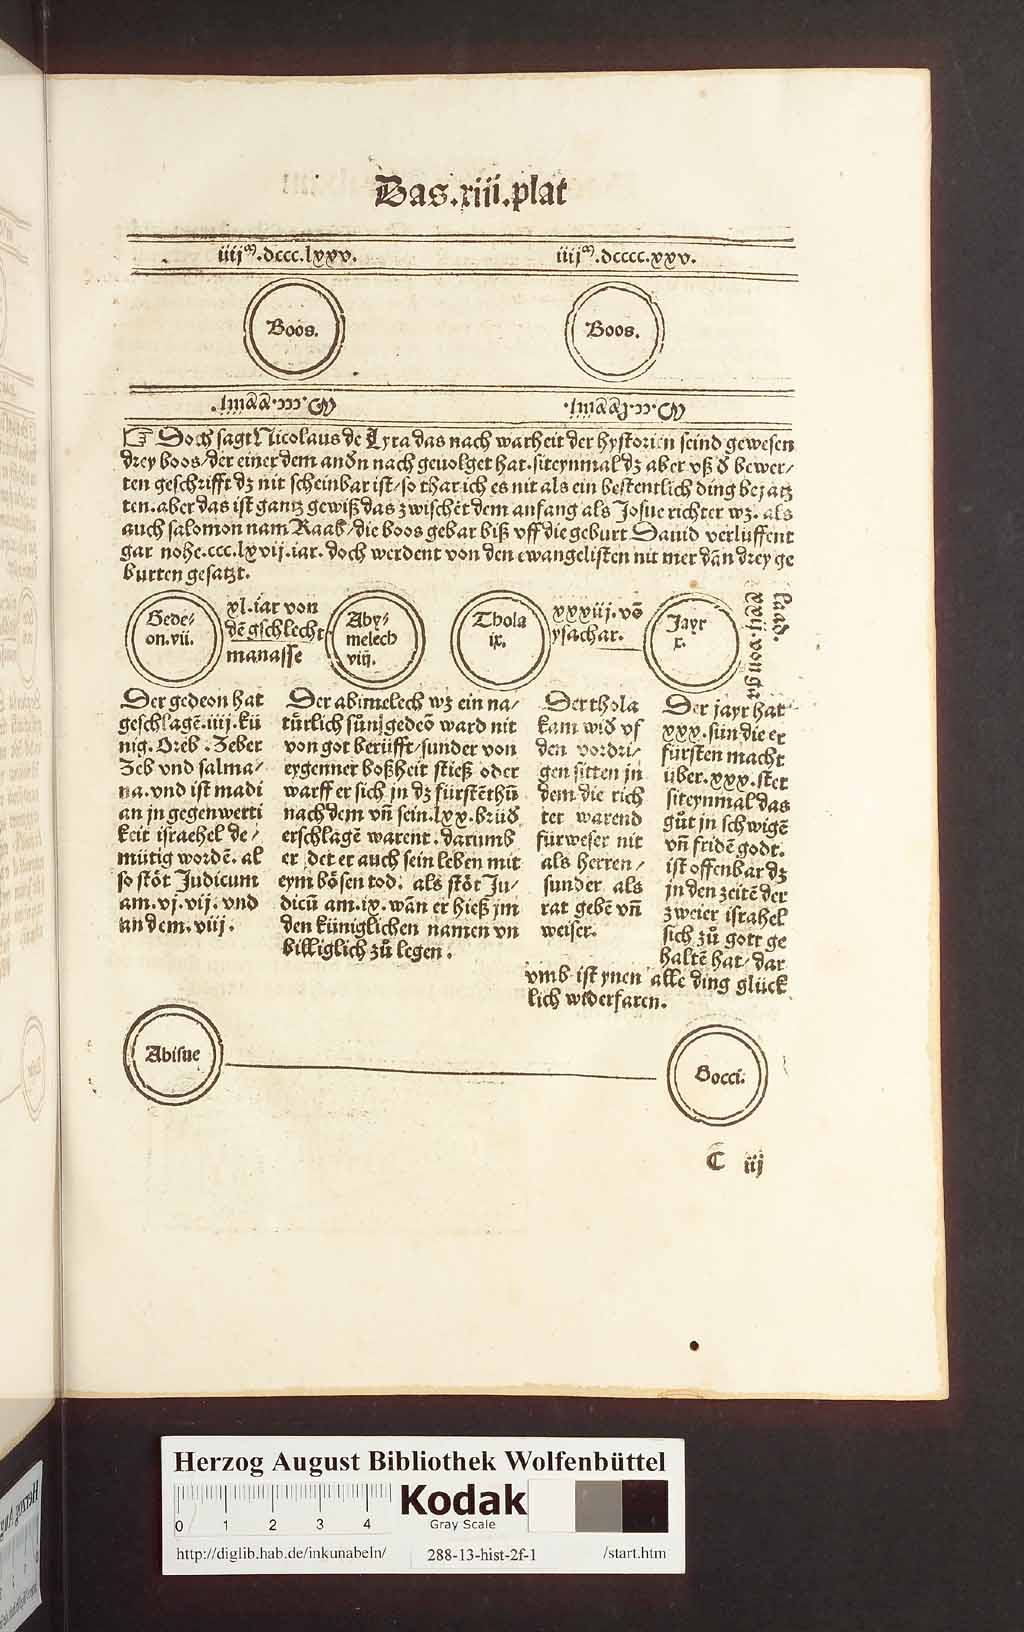 Das.xiii.plat
iiijᵐ.dccc.lxxv. iiijᵐ.dcccc.xxv.
Boos. Boos.
☞ Doch sagt Nicolaus de Lyra das nach warheit der hystorien seind gewesen
drey boos/der einer dem andn̄ nach geuolget hat.siteynmal dz aber vß d̄ bewer/
ten geschrifft dz nit scheinbar ist/so thar ich es nit als ein bestentlich ding bezatz
ten.aber das ist gantz gewiß das zwischēt dem anfang als Josue richter wz. als
auch salomon nam Raab/die boos gebar biß vff die geburt Dauid verluffent
gar nohe.ccc.lxvij.iar. doch werdent von den ewangelisten nit mer dān drey ge
burten gesatzt.
Gede/
on.vii.
xl.iar von
dē gschlecht
manasse
Aby/
melech
viij.
Thola
ix.
xxxiij.vō
ysachar.
Jayr
x.
xxij.von ga
laad.
Der gedeon hat
geschlagē.iiij.kü
nig. Oreb . Zeber
Zeb vnd salma/
na.vnd ist madi
an in gegenwerti
keit israehel de/
mütig wordē. al
so stōt Judicum
am.vj.vij. vnd
an dem.viij.
Der abimelech wz ein na/
tůrlich sůn gedeō ward nit
von got berüfft/sunder von
eygenner boßheit stieß oder
warff er sich in dz fürstēthū
nach dem vn̄ sein.lxx.brüd̄
erschlagē warent. darumb
er det er auch sein leben mit
eym bösen tod. als stōt Ju/
dicū am.ix.wān er hieß jm
den küniglichen namen vn
billiglich zů legen.
Der thola
kam wid̄ vf
den vordri/
gen sitten jn
dem die rich
ter warend
fürweser nit
als herren/
sunder als
rat gebē vn̄
weiser.
Der jayr hat
xxx.sün die er
fürsten macht
über.xxx.stet
siteynmal das
gůt jn schwigē
vn̄ fridē godt.
ist offenbar dz
jn den zeitē der
zweier israhel
sich zů gott ge
haltē hat/dar
vmb ist ynen alle ding glück
lich widerfaren.
Abisue
Bocci.
C iij
Herzog August Bibliothek Wolfenbüttel
0 1 2 3 4
Kodak
Gray Scale
http://diglib.hab.de/inkunabeln/ 288-13-hist-2f-1 /start.htm